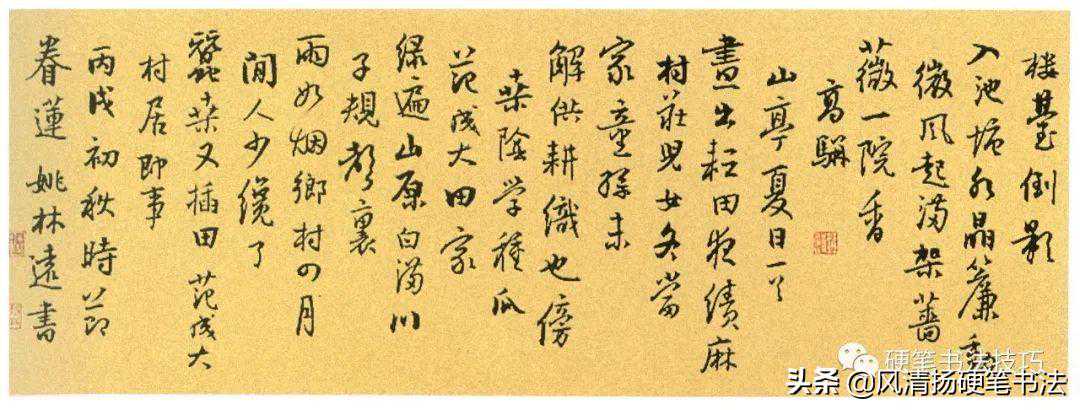 楼臺倒影
入池塘水晶簾動
微风起满架薔
薇一院香
高駢
山亭夏日一首
晝出耘田夜績麻
村莊児女各當
家童孫未
解供耕織也傍
桑陰学種瓜
范成大田家
绿遍山原白满川
子規聲裏
雨如烟鄉村四月
閒人少纔了
蠶桑又插田 范成大
村居即事
丙戌初秋時節
眷蓮 姚林遠書
硬笔书法技巧
头条 @风清扬硬笔书法